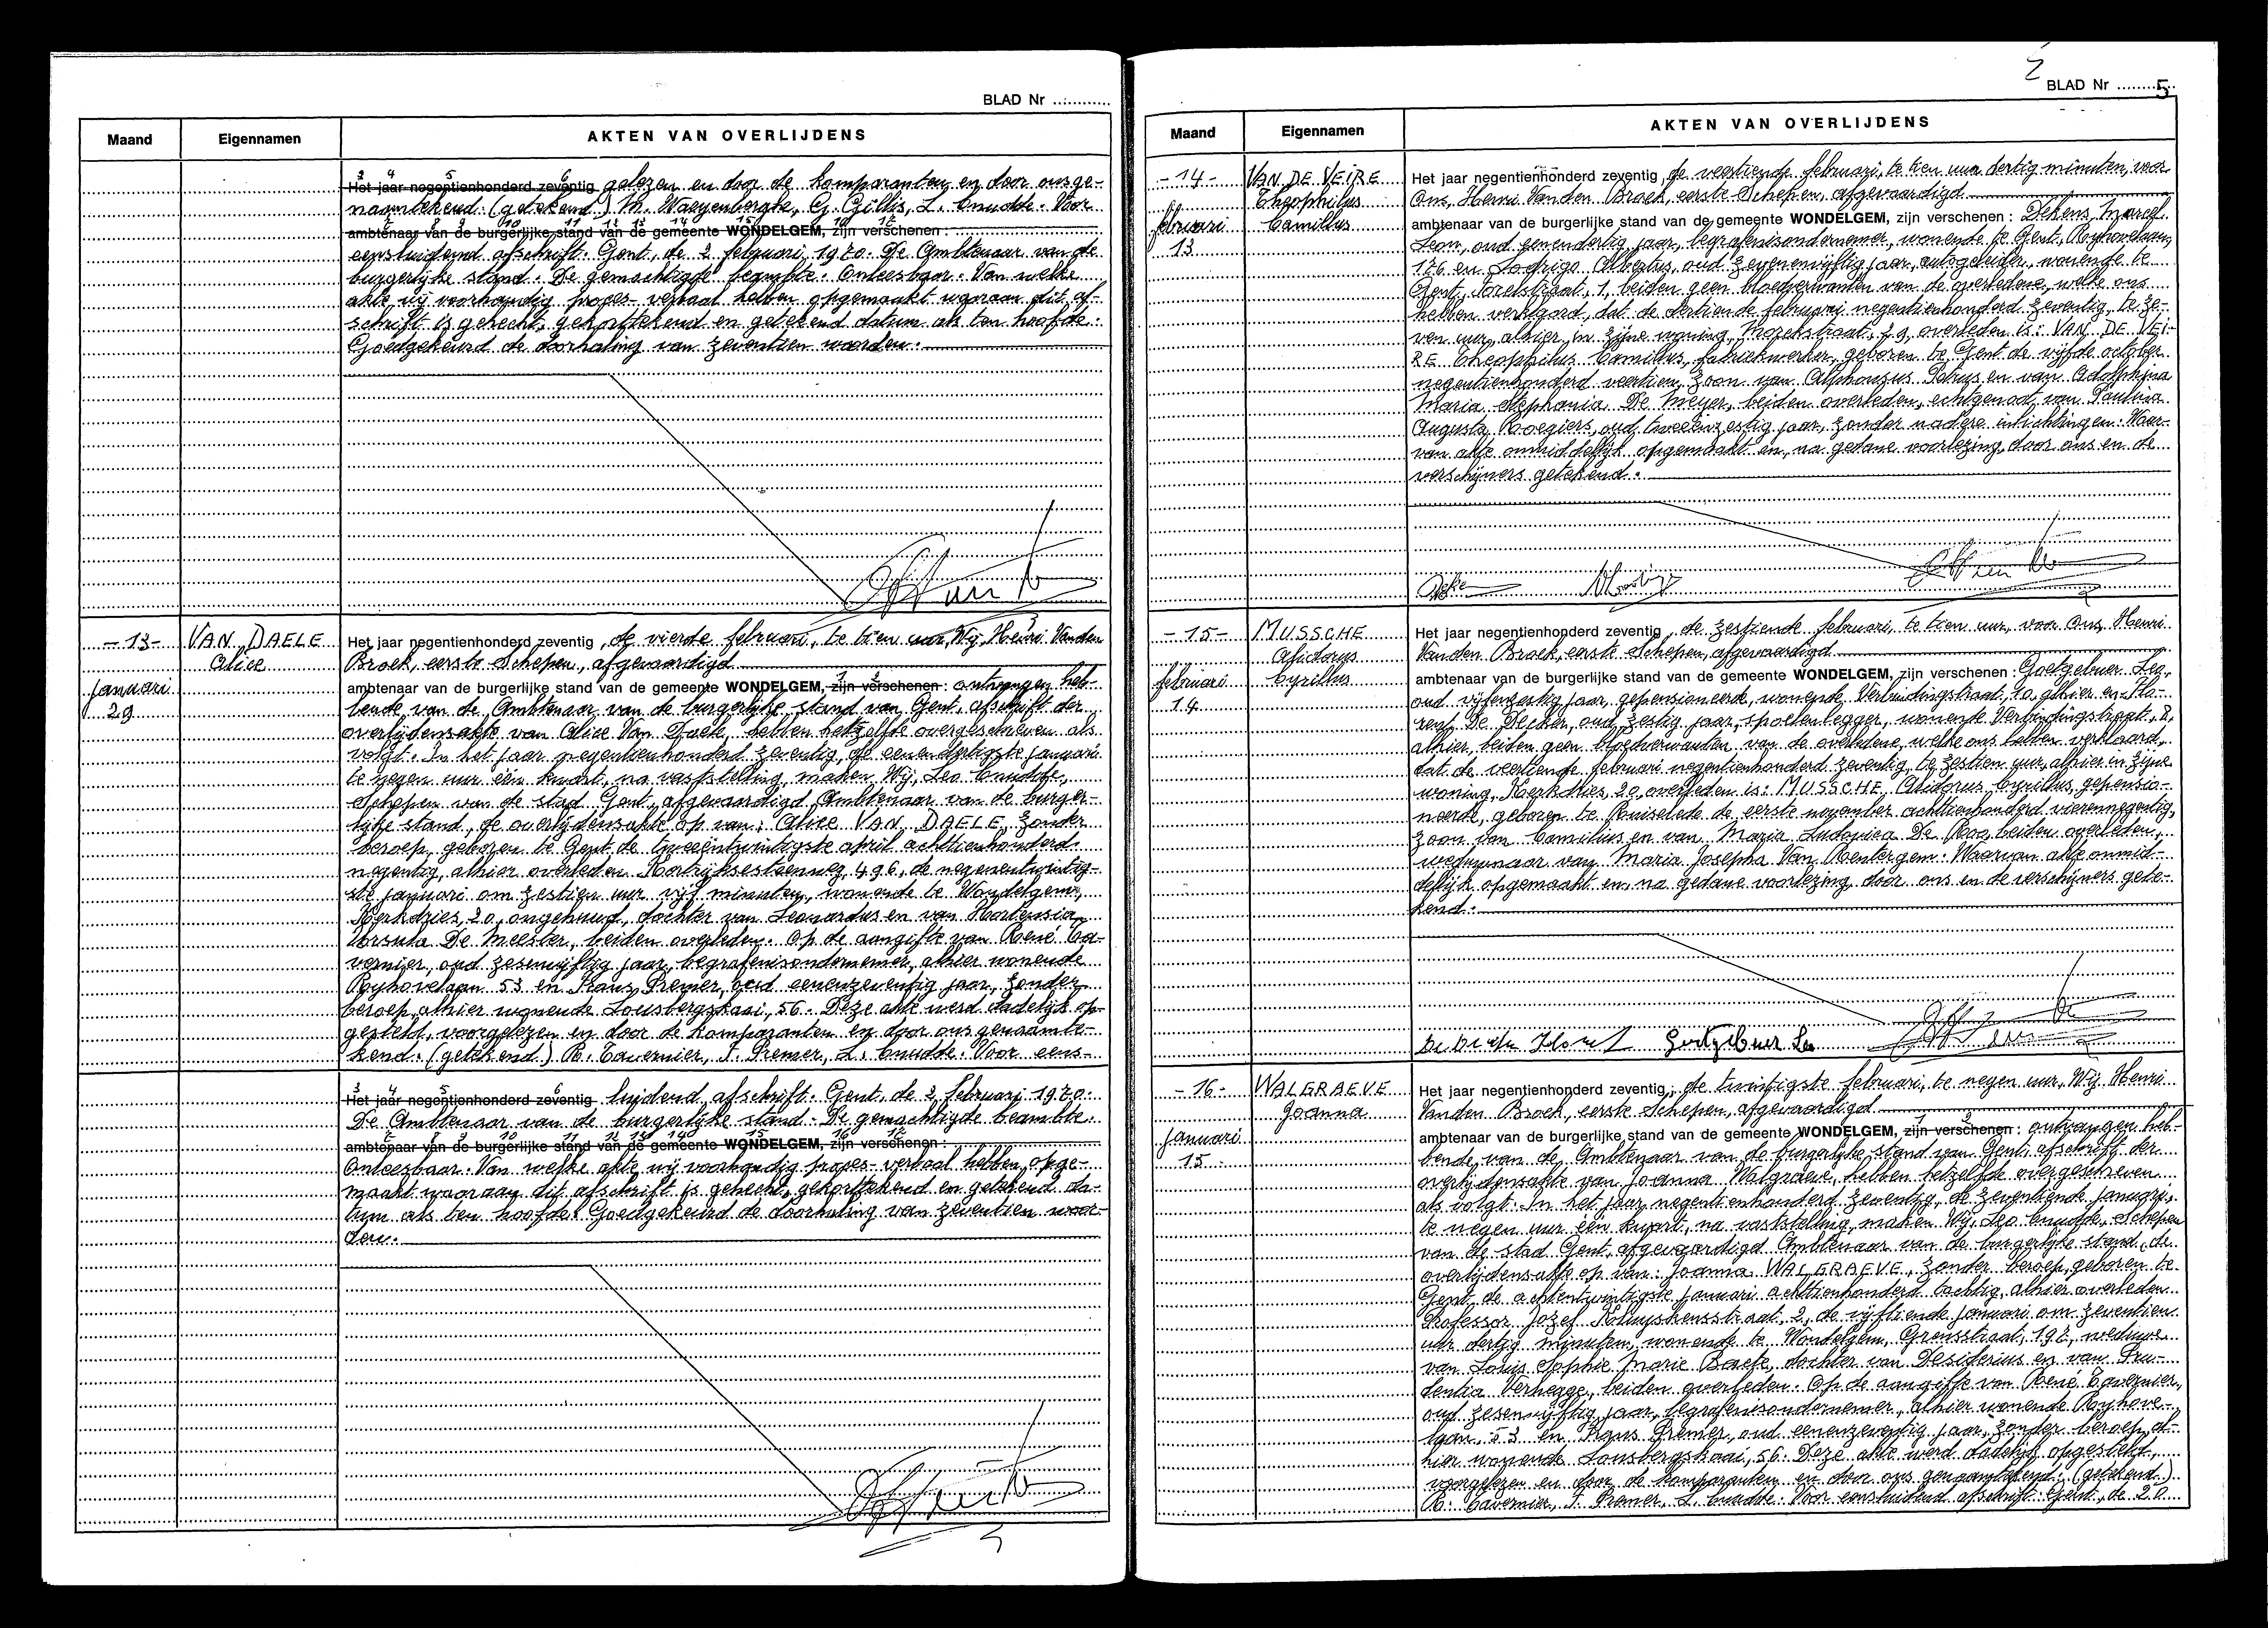 BLAD Nr ............
Maand
Eigennamen
AKTEN VAN OVERLIJDENS
3 4 5 6
Het jaar negentienhonderd zeventig gelezen en door de komparanten en door ons ge-
naamtekend. (getekend) M. Waeyenberghe, G. Gillis, L. Cnudde. Voor
7 8 9 10 11 12 13 14 15 16 17
ambtenaar van de burgerlijke stand van de gemeente WONDELGEM, zijn verschenen :
eensluidend afschrift. Gent, de 2 februari 1970. De Ambtenaar van de
burgerlijke stand. De gemachtigde beambte. Onleesbaar. Van welke
akte wij voorhandig proces-verbaal hebben opgemaakt waaraan dit af-
schrift is gehecht, gekorttekend en getekend datum als ten hoofde.
Goedgekeurd de doorhaling van zeventien woorden.
-13-
januari
29
VAN DAELE
Alice
Het jaar negentienhonderd zeventig, de vierde februari, te tien uur, Wij, Henri Vanden
Broek, eerste Schepen, afgevaardigd
1 2
ambtenaar van de burgerlijke stand van de gemeente WONDELGEM, zijn verschenen : ontvangen heb-
bende van de Ambtenaar van de burgerlijke stand van Gent, afschrift der
overlijdensakte van Alice Van Daele, hebben hetzelfde overgeschreven als
volgt. In het jaar negentienhonderd zeventig, de eenendertigste januari
te negen uur één kwart, na vaststelling, maken Wij, Leo Cnudde,
Schepen van de stad Gent, afgevaardigd Ambtenaar van de burger-
lijke stand, de overlijdensakte op van: Alice VAN DAELE, zonder
beroep, geboren te Gent, de tweeëntwintigste april achttienhonderd
negentig, alhier overleden Kortrijksesteenweg, 496, de negenentwintig-
ste januari om zestien uur vijf minuten, wonende te Wondelgem,
Kerkdries, 20, ongehuwd, dochter van Leonardus en van Hortensia
Ursula De Meester, beiden overleden. Op de aangifte van René Ta-
vernier, oud zesenvijftig jaar, begrafenisondernemer, alhier wonende
Ryhovelaan 53 en Frans Premer, oud eenenzeventig jaar, zonder
beroep, alhier wonende Lousbergskaai, 56. Deze akte werd dadelijk op-
gesteld, voorgelezen en door de komparanten en door ons genaamte-
kend. (getekend) R. Tavernier, F. Premer, L. Cnudde. Voor eens-
3 4 5 6
Het jaar negentienhonderd zeventig luidend afschrift. Gent, de 2 februari 1970.
De Ambtenaar van de burgerlijke stand. De gemachtigde beambte.
7 8 9 10 11 12 13 14 15 16 17
ambtenaar van de burgerlijke stand van de gemeente WONDELGEM, zijn verschenen :
Onleesbaar. Van welke akte wij voorhandig proces-verbaal hebben opge-
maakt waaraan dit afschrift is gehecht, gekorttekend en getekend da-
tum als ten hoofde. Goedgekeurd de doorhaling van zeventien woor-
den.
BLAD Nr ........5
Maand
Eigennamen
AKTEN VAN OVERLIJDENS
-14-
februari
13
VAN DE VEIRE
Theophilus
Camillus
Het jaar negentienhonderd zeventig, de veertiende februari, te tien uur dertig minuten, voor
Ons, Henri Vanden Broek, eerste Schepen, afgevaardigd
ambtenaar van de burgerlijke stand van de gemeente WONDELGEM, zijn verschenen : Dekens, Marcel
Leon, oud eenendertig jaar, begrafenisondernemer, wonende te Gent, Ryhovelaan,
176 en Lodrigo Albertus, oud zevenenvijftig jaar, autogeleider, wonende te
Gent, Torelstraat, 1, beiden geen bloedverwanten van de overledene, welke ons
hebben verklaard, dat de dertiende februari negentienhonderd zeventig, te ze-
ven uur, alhier, in zijne woning, Molenstraat, 29, overleden is: VAN DE VEI-
RE Theophilus Camillus, fabriekwerker, geboren te Gent de vijfde october
negentienhonderd veertien, zoon van Alphonsus Petrus en van Adolphina
Maria Stephania De Meyer, beiden overleden, echtgenoot van Paulina
Augusta Roegiers, oud tweeënzestig jaar, zonder nadere inlichtingen. Waar-
van akte onmiddelijk opgemaakt en, na gedane voorlezing, door ons en de
verschijners getekend.
-15-
februari
14
MUSSCHE
Alidorus
Cyrillus
Het jaar negentienhonderd zeventig, de zestiende februari, te tien uur, voor Ons, Henri
Vanden Broek, eerste Schepen, afgevaardigd
ambtenaar van de burgerlijke stand van de gemeente WONDELGEM, zijn verschenen : Goetgebuer Leo,
oud vijfenzestig jaar, gepensioneerde, wonende Verbindingstraat, 20, alhier en Flo-
rent De Decker, oud zestig jaar, spoelenlegger, wonende Verbindingstraat, 2,
alhier, beiden geen bloedverwanten van de overledene, welke ons hebben verklaard,
dat de veertiende februari negentienhonderd zeventig, te zestien uur, alhier in zijne
woning, Kerkdries, 20, overleden is: MUSSCHE Alidorus Cyrillus, gepensio-
neerde, geboren te Ruiselede de eerste november achttienhonderd vierennegentig,
zoon van Camillus en van Maria Ludovica De Roo, beiden overleden,
weduwnaar van Maria Josepha Van Renterghem. Waarvan akte onmid-
delijk opgemaakt en, na gedane voorlezing, door ons en de verschijners gete-
kend.
Goetgebuer Leo
-16-
januari
15
WALGRAEVE
Joanna
Het jaar negentienhonderd zeventig, de twintigste februari, te negen uur, Wij, Henri
Vanden Broek, eerste Schepen, afgevaardigd
1 2
ambtenaar van de burgerlijke stand van de gemeente WONDELGEM, zijn verschenen : ontvangen heb-
bende van de Ambtenaar van de burgerlijke stand van Gent, afschrift der
overlijdensakte van Joanna Walgraeve, hebben hetzelfde overgeschreven
als volgt. In het jaar negentienhonderd zeventig, de zeventiende januari,
te negen uur één kwart, na vaststelling, maken Wij, Leo Cnudde, Schepen
van de stad Gent, afgevaardigd Ambtenaar van de burgerlijke stand, de
overlijdensakte op van: Joanna WALGRAEVE, zonder beroep, geboren te
Gent de achtentwintigste januari achttienhonderd tachtig, alhier overleden
Professor Jozef Kluyskensstraat, 2, de vijftiende januari om zeventien
uur dertig minuten, wonende te Wondelgem, Grensstraat, 197, weduwe
van Louis Sophie Marie Baete, dochter van Desiderius en van Pru-
dentia Verhegge, beiden overleden. Op de aangifte van René Tavernier,
oud zesenvijftig jaar, begrafenisondernemer, alhier wonende Ryhove-
laan, 53 en Frans Premer, oud eenenzeventig jaar, zonder beroep, al-
hier wonende Lousbergskaai, 56. Deze akte werd dadelijk opgesteld,
voorgelezen en door de komparanten en door ons genaamtekend. (getekend)
R. Tavernier, F. Premer, L. Cnudde. Voor eensluidend afschrift. Gent, de 20